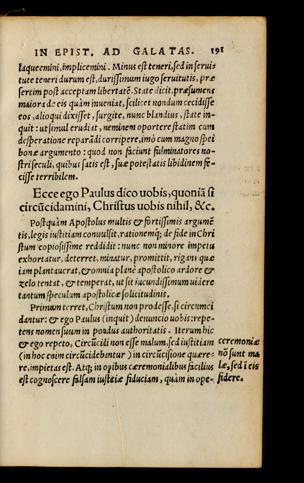 IN EPIST. AD GALATAS. 191
laqueemini, implicemini. Minus est teneri, sed in serui=
tute teneri durum est, durissimum iugo seruitutis, præ
sertim post acceptam libertatē. State dicit, præsumens
maiora de eis quàm inueniat, scilicet nondum cecidisse
eos, alioqui dixisset, surgite, nunc blandius, state in-
quit: ut simul erudiat, neminem oportere statim cum
desperatione reparādi corripere, imò cum magno spei
bonæ argumento: quod non faciunt fulminatores no-
stri seculi, quibus satis est, suæ potestatis libidinem fe-
cisse terribilem.
Ecce ego Paulus dico uobis, quoniā si
circūcidamini, Christus uobis nihil, &c.
Postquàm Apostolus multis & fortissimis argumē
tis, legis iustitiam conuulsit, rationemq́; de fide in Chri
stum copiosissime reddidit: nunc non minore impetu
exhortatur, deterret, minatur, promittit, rigans quæ
iam plantauerat, & omnia planè apostolico ardore &
zelo tentat, & temperat, ut sit iucundissimum uidere
tantum speculum apostolicæ solicitudinis.
Primum terret, Christum non prodesse, si circumci
dantur: & ego Paulus (inquit) denuncio uobis: repe-
tens nomen suum in pondus authoritatis. Iterum hic
& ego repeto, Circūcisi non esse malum, sed iustitiam
(in hoc enim circūcidebantur) in circūcisione quære=
re, impietas est. Atq; in operibus cæremonialibus facilius
est cognoscere falsam iustitiæ fiduciam, quàm in ope-
ceremoniæ
nō sunt ma
læ, sed ī eis
fidere.